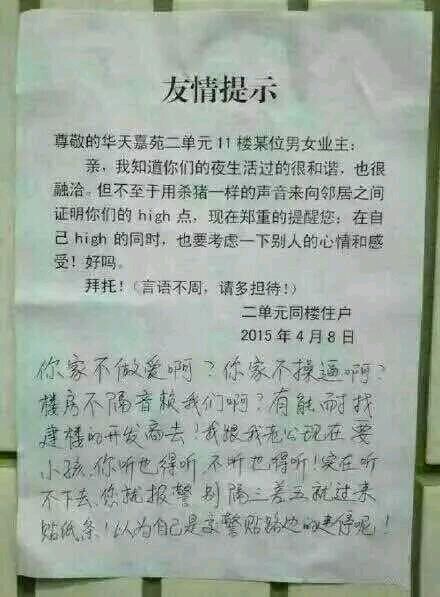 友情提示
尊敬的华天嘉苑二单元11楼某位男女业主：
亲，我知道你们的夜生活过的很和谐，也很
融洽。但不至于用杀猪一样的声音来向邻居之间
证明你们的 high 点，现在郑重的提醒您；在自
己 high 的同时，也要考虑一下别人的心情和感
受！好吗。
拜托！（言语不周，请多担待！）
二单元同楼住户
2015年4月8日
你家不做爱啊？你家不操逼啊？
楼房不隔音赖我们啊？有能耐找
建楼的开发商去！我跟我老公现在要
小孩，你听也得听，不听也得听！实在听
不下去，您就报警 别隔三差五就过来
贴纸条！以为自己是交警贴路边的违停呢！